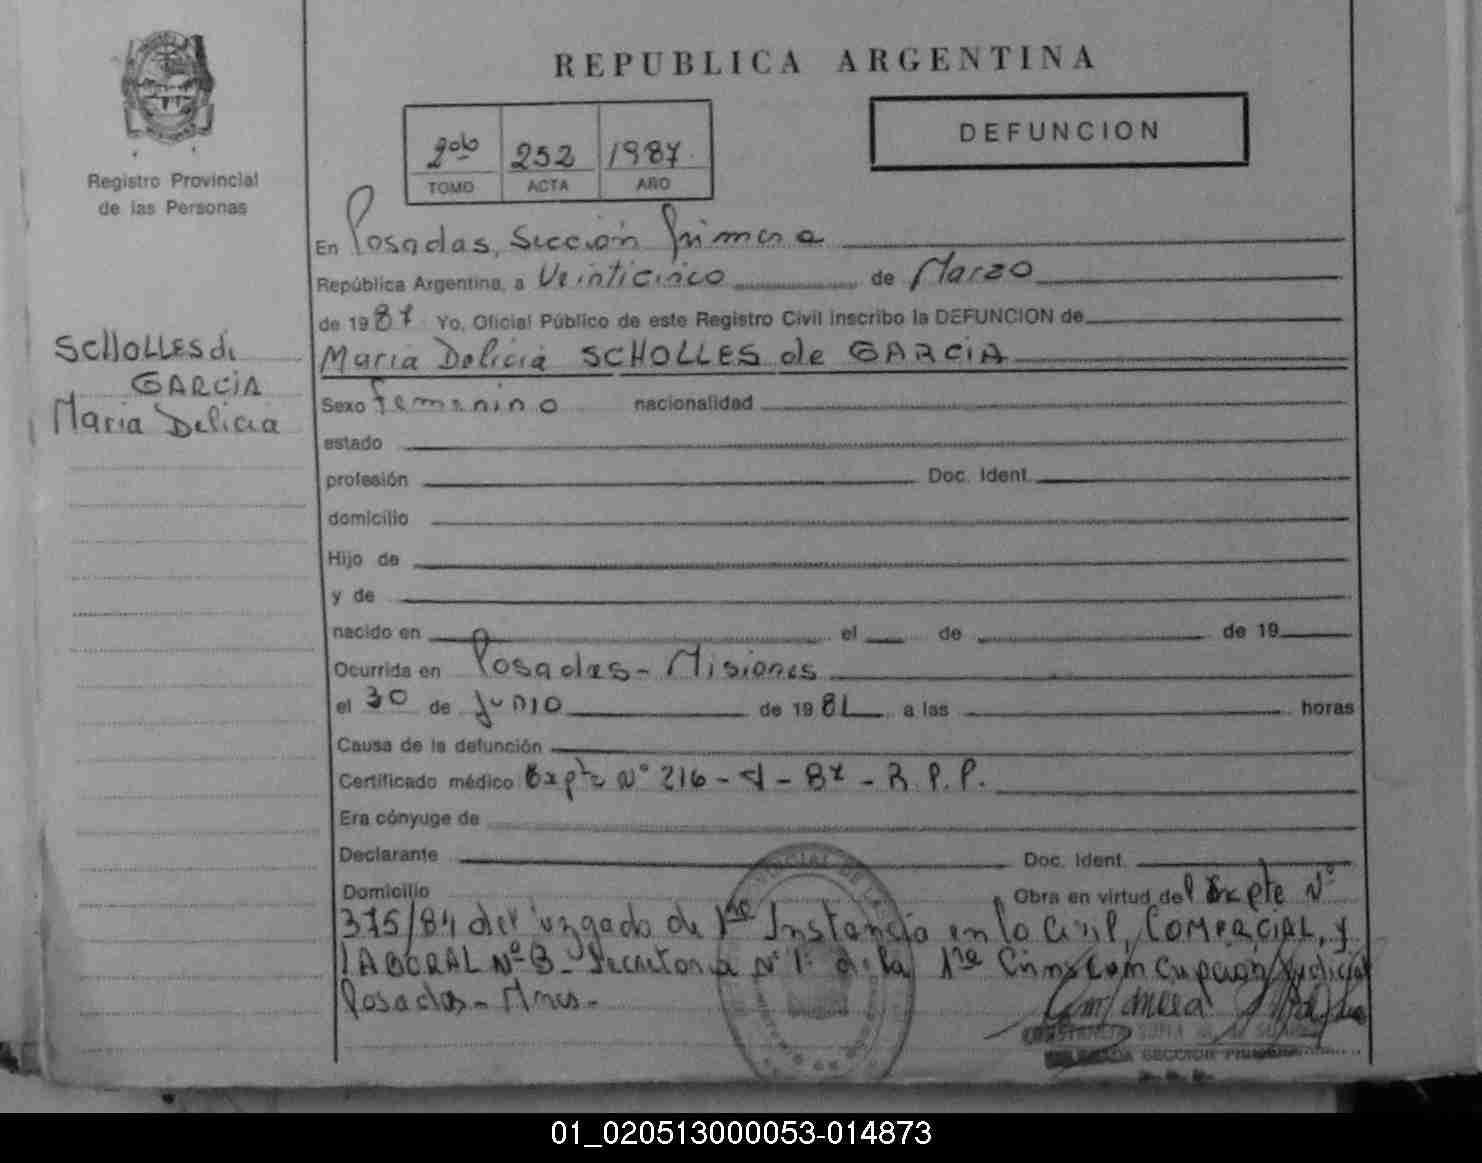 REPUBLICA ARGENTINA
DEFUNCION
2do 252 1987
TOMO ACTA AÑO
Registro Provincial
de las Personas
En Posadas, Sección Primera
República Argentina, a Veinticinco de Marzo
de 1987 Yo, Oficial Público de este Registro Civil inscribo la DEFUNCION de
Maria Delicia SCHOLLES de GARCIA
SCHOLLES de
GARCIA
Maria Delicia
Sexo femenino nacionalidad
estado
profesión Doc. Ident.
domicilio
Hijo de
y de
nacido en el de de 19
Ocurrida en Posadas - Misiones
el 30 de Junio de 1981 a las horas
Causa de la defunción
Certificado médico Expte Nº 216 - - 87 - R.P.P.
Era cónyuge de
Declarante Doc. Ident.
Domicilio Obra en virtud del Expte Nº
375/84 del Juzgado de 1ra Instancia en lo Civil, COMERCIAL, y
LABORAL Nº 3 - Secretaria Nº 1 de la 1ra Judicial
Posadas - Mnes -
SECCION PRIMERA
01_020513000053-014873